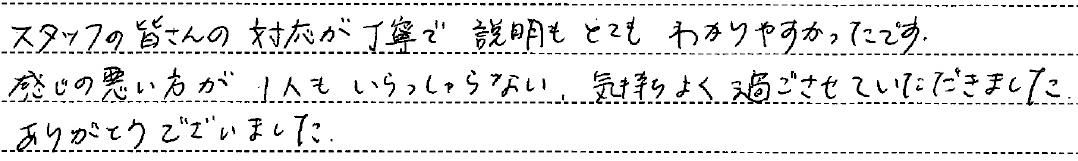 スタッフの皆さんの対応が丁寧で 説明もとても わかりやすかったです.
感じの悪い方が 1人も いらっしゃらない, 気持ちよく過ごさせていただきました.
ありがとうございました.